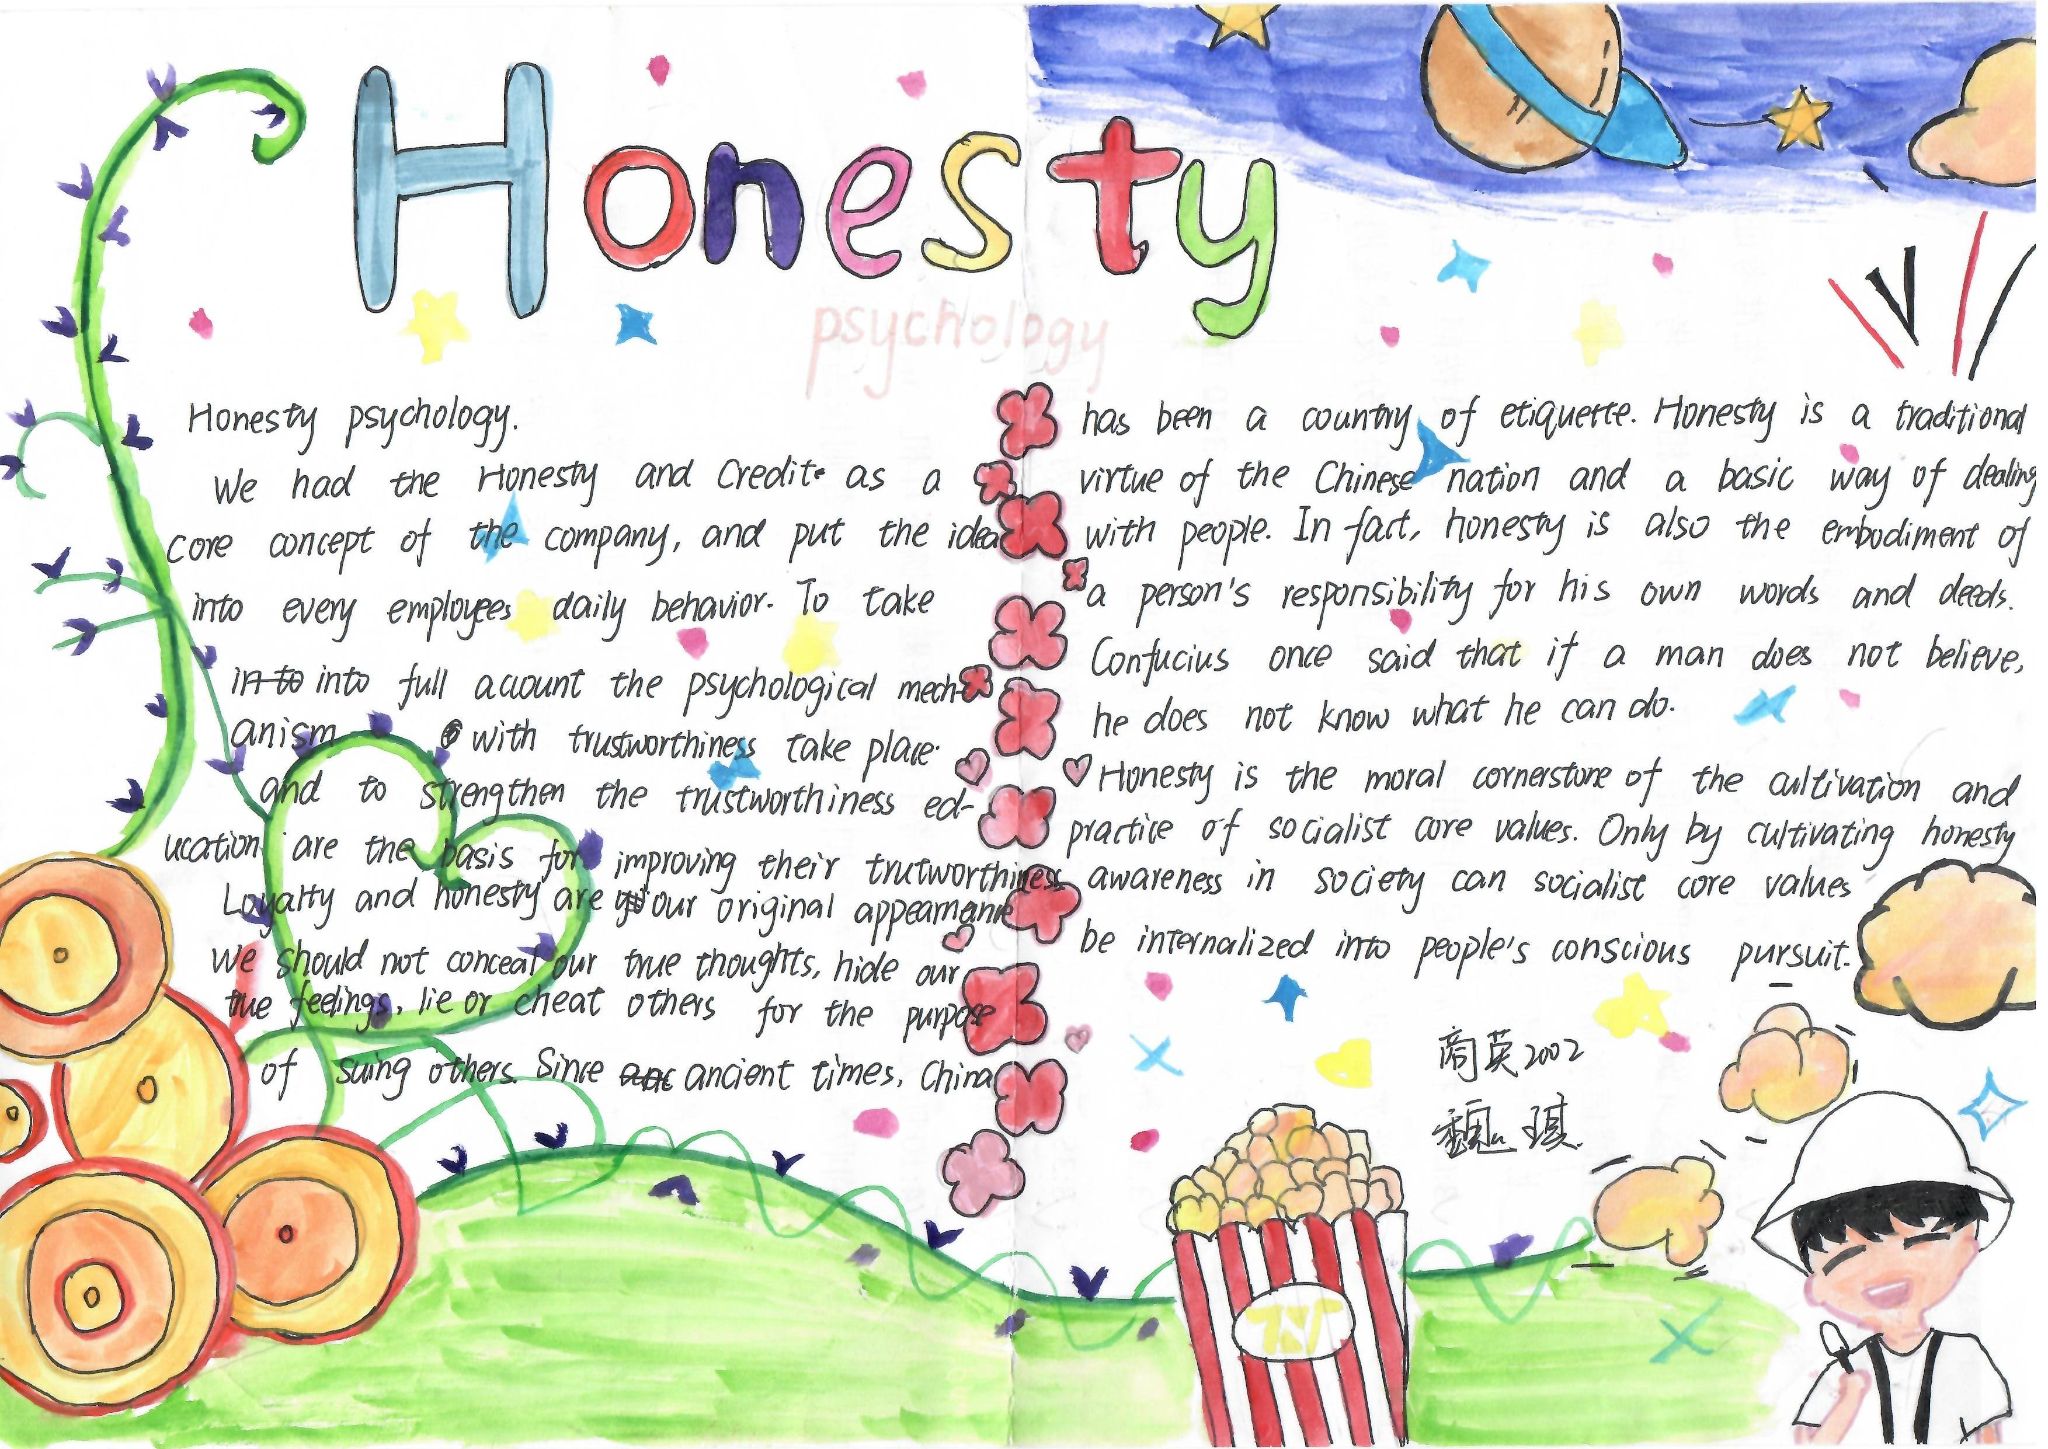 Honesty
psychology
Honesty psychology.
We had the Honesty and Credit as a
core concept of the company, and put the idea
into every employees daily behavior. To take
into into full account the psychological mech-
anism with trustworthiness take place.
and to strengthen the trustworthiness ed-
ucation are the basis for improving their trutworthiness
Loyalty and honesty are our original appearance
We should not conceal our true thoughts, hide our
true feelings, lie or cheat others for the purpose
of suing others. Since ancient times, China
has been a country of etiquette. Honesty is a traditional
virtue of the Chinese nation and a basic way of dealing
with people. In fact, honesty is also the embodiment of
a person's responsibility for his own words and deeds.
Confucius once said that if a man does not believe,
he does not know what he can do.
Honesty is the moral cornerstone of the cultivation and
practice of socialist core values. Only by cultivating honesty
awareness in society can socialist core values
be internalized into people's conscious pursuit.
商英2002
魏琪